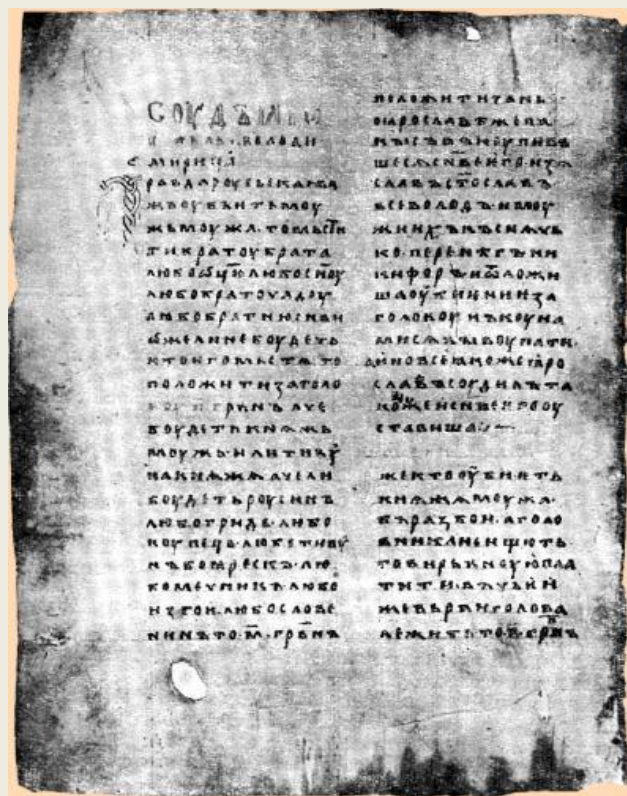 СОУДЪ
володи
мирица
равда роусьская
жь оубиеть моу
жь моужа. то мьсти
ти братоу брата
любо ѡцю любо сноу
любо братоучадоу
любо братню снви
ѡже ли не боудеть
кто его мьстѧ. то
положити за голо
боудеть кнѧжь
моужь. или тиоу
на кнѧжѧ. аче ли
боудеть роусинъ
любо гридь. любо
коупець. любо тивоу
нъ боѧрескъ. лю
бо мечникъ. любо
изгои. любо слове
нинъ. то .м҃. грвнъ
положити за нь
по ꙗрославѣ же па
кы съвъкоупивъ
шесѧ снве его. изѧ
славъ. стославъ
всеволодъ. и моу
жи ихъ. къснѧчь
ко. перенѣгъ. ни
кифоръ. и ѿложи
ша оубиение за
головоу. нъ коуна
ми сѧ выкоупати.
а ино все ꙗкоже ꙗро
славъ соудилъ. та
коже и снве его оу
ставиша
же кто оубиеть
кнѧжѧ моужа.
въ разбои. а голо
вника не ищють
то вирьвноую пла
тити. въ чьеи
же вьрви голова
лежить. то .п҃. грвнъ